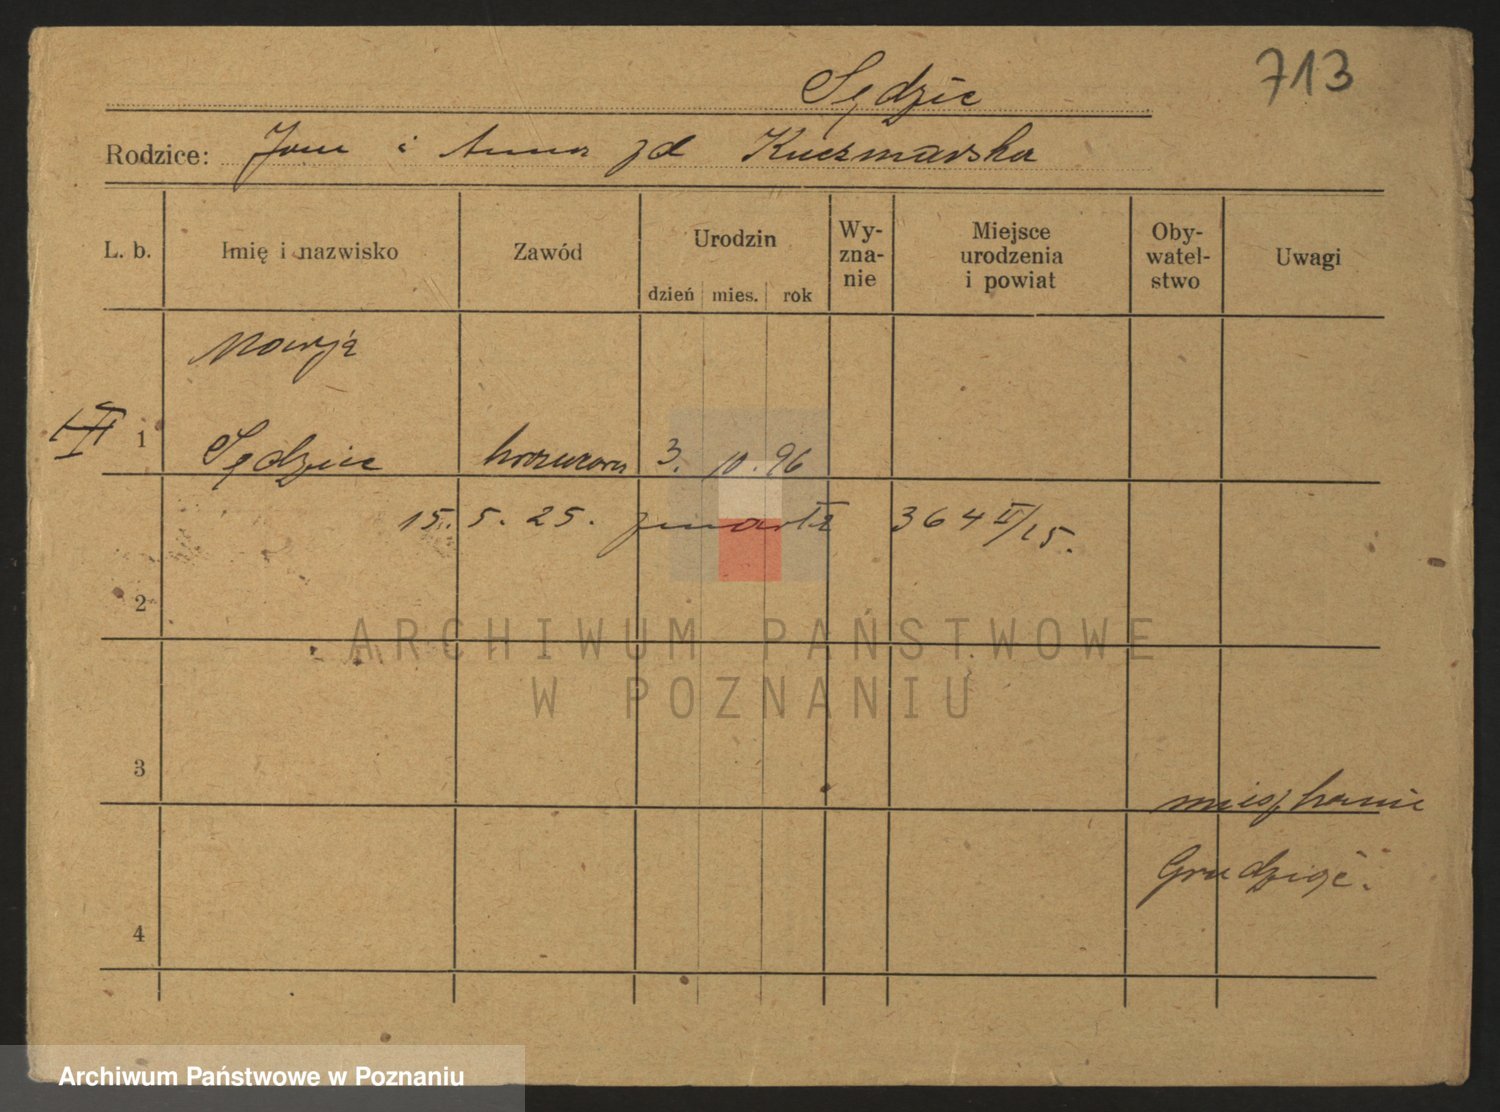 713
Sędzic
Rodzice: Jan i Anna zd Kuczmarska
L. b. Imię i nazwisko Zawód Urodzin dzień mies. rok Wy- zna- nie Miejsce urodzenia i powiat Oby- watel- stwo Uwagi
Marja
1 Sędzic 3. 10. 96
15. 5. 25. zmarła 364 II/25.
2
ARCHIWUM PAŃSTWOWE
W POZNANIU
3
4
Archiwum Państwowe w Poznaniu